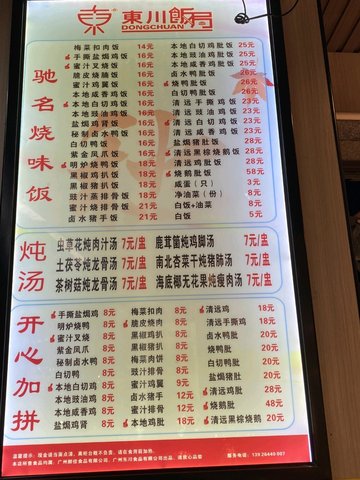 東川飯局
DONGCHUAN
驰名烧味饭
梅菜扣肉饭 14元
手撕盐焗鸡饭 16元
蜜汁叉烧饭 16元
脆皮烧腩饭 16元
蜜汁鸡翼饭 16元
本地咸香鸡饭 16元
本地白切鸡饭 16元
本地豉油鸡饭 16元
盐焗鸡肾饭 16元
秘制卤水鸭饭 16元
白切鸭饭 16元
紫金凤爪饭 16元
明炉烧鸭饭 16元
黑椒鸡扒饭 16元
黑椒猪扒饭 18元
豉汁蒸排骨饭 21元
蜜汁烧排骨饭 21元
卤水猪手饭 21元
本地白切鸡肶饭 25元
本地豉油鸡肶饭 25元
本地咸香鸡肶饭 25元
卤水鸭肶饭 26元
烧鸭肶饭 26元
白切鸭肶饭 26元
清远手撕鸡饭 23元
清远豉油鸡饭 23元
清远白切鸡饭 23元
清远咸香鸡饭 23元
盐焗猪肚饭 28元
清远黑棕烧鹅饭 28元
清远鸡肶饭 38元
烧鹅肶饭 58元
咸蛋（只） 3元
净油菜（份） 8元
白饭+油菜 8元
白饭 5元
炖汤
虫草花炖肉汁汤 7元/盅
土茯苓炖龙骨汤 7元/盅
茶树菇炖龙骨汤 7元/盅
鹿茸菌炖鸡脚汤 7元/盅
南北杏菜干炖猪肺汤 7元/盅
海底椰无花果炖瘦肉汤 7元/盅
开心加拼
手撕盐焗鸡 8元
明炉烧鸭 8元
卤水鸭 8元
紫金凤爪 8元
白切鸭 8元
本地白切鸡 8元
本地豉油鸡 8元
本地咸香鸡 8元
盐焗鸡肾 8元
梅菜扣肉 8元
脆皮烧肉 8元
黑椒鸡扒 8元
黑椒猪扒 8元
梅菜肉饼 8元
豉汁排骨 8元
蜜汁鸡翼 9元
卤水猪手 12元
蜜汁排骨 12元
蜜汁叉烧 8元
清远鸡 18元
清远手撕鸡 18元
卤水鸭肶 20元
烧鸭肶 20元
白切鸭肶 20元
盐焗猪肚 20元
清远鸡肶 28元
烧鹅肶 48元
清远黑棕烧鹅 20元
服务电话：13926440007